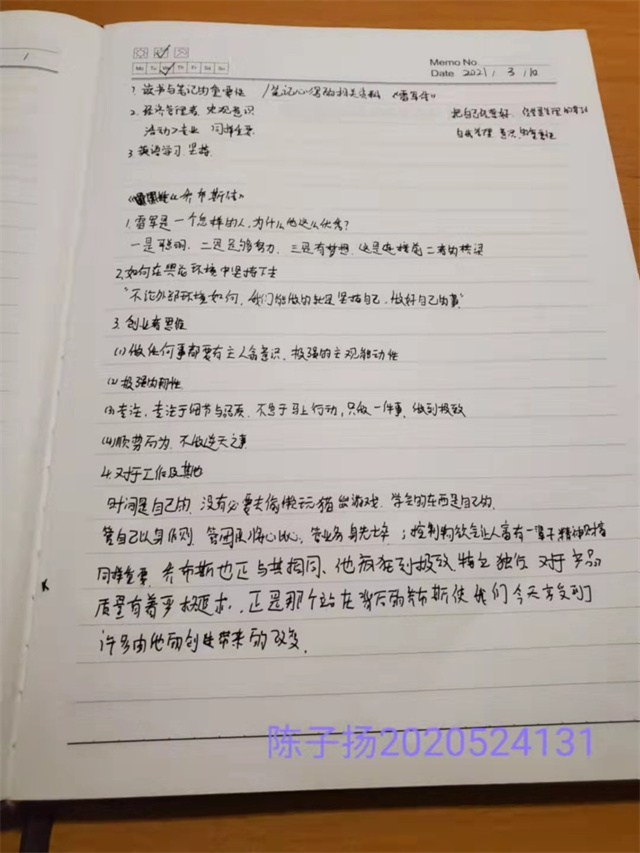 Mo Tu We Th Fr Sa Su
Memo No
Date 2021 / 3 / 10
1. 读书与笔记的重要性 / 笔记心得的相关资料 《雷军传》
2. 经济管理者 宏观意识
活动>专业 同样重要
自我管理 意识的重要性
3. 英语学习 坚持
乔布斯传》
1. 雷军是一个怎样的人,为什么他这么优秀?
一是聪明,二是足够努力,三是有梦想,这是连接前二者的桥梁
2. 如何在恶劣环境中坚持下去
"不论外部环境如何,我们能做的就是坚持自己,做好自己的事"
3. 创业者思维
(1) 做任何事都要有主人翁意识,极强的主观能动性
(2) 极强的韧性
(3) 专注,专注于细节与品质,不急于马上行动,只做一件事,做到极致
(4) 顺势而为,不做逆天之事
4. 对于工作及其他
时间是自己的,没有必要去偷懒玩猫做游戏,学会的东西是自己的.
管自己以身作则,管团队将心比心,管业务身先士卒;控制物欲会让人富有一辈子,精神财富
同样重要,乔布斯也正与其相同,他疯狂到极致,特立独行,对于产品
质量有着严格追求,正是那个站在背后的乔布斯使我们今天享受到了
许多由他的创造带来的改变.
陈子扬2020524131